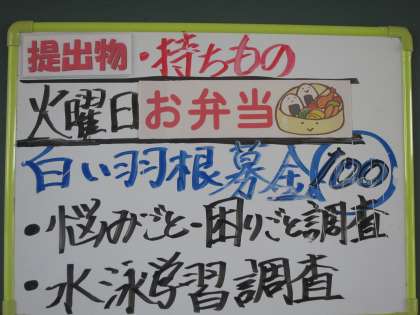 提出物・持ちもの
火曜日 お弁当
白い羽根募金 100
・悩みごと・困りごと調査
・水泳学習調査